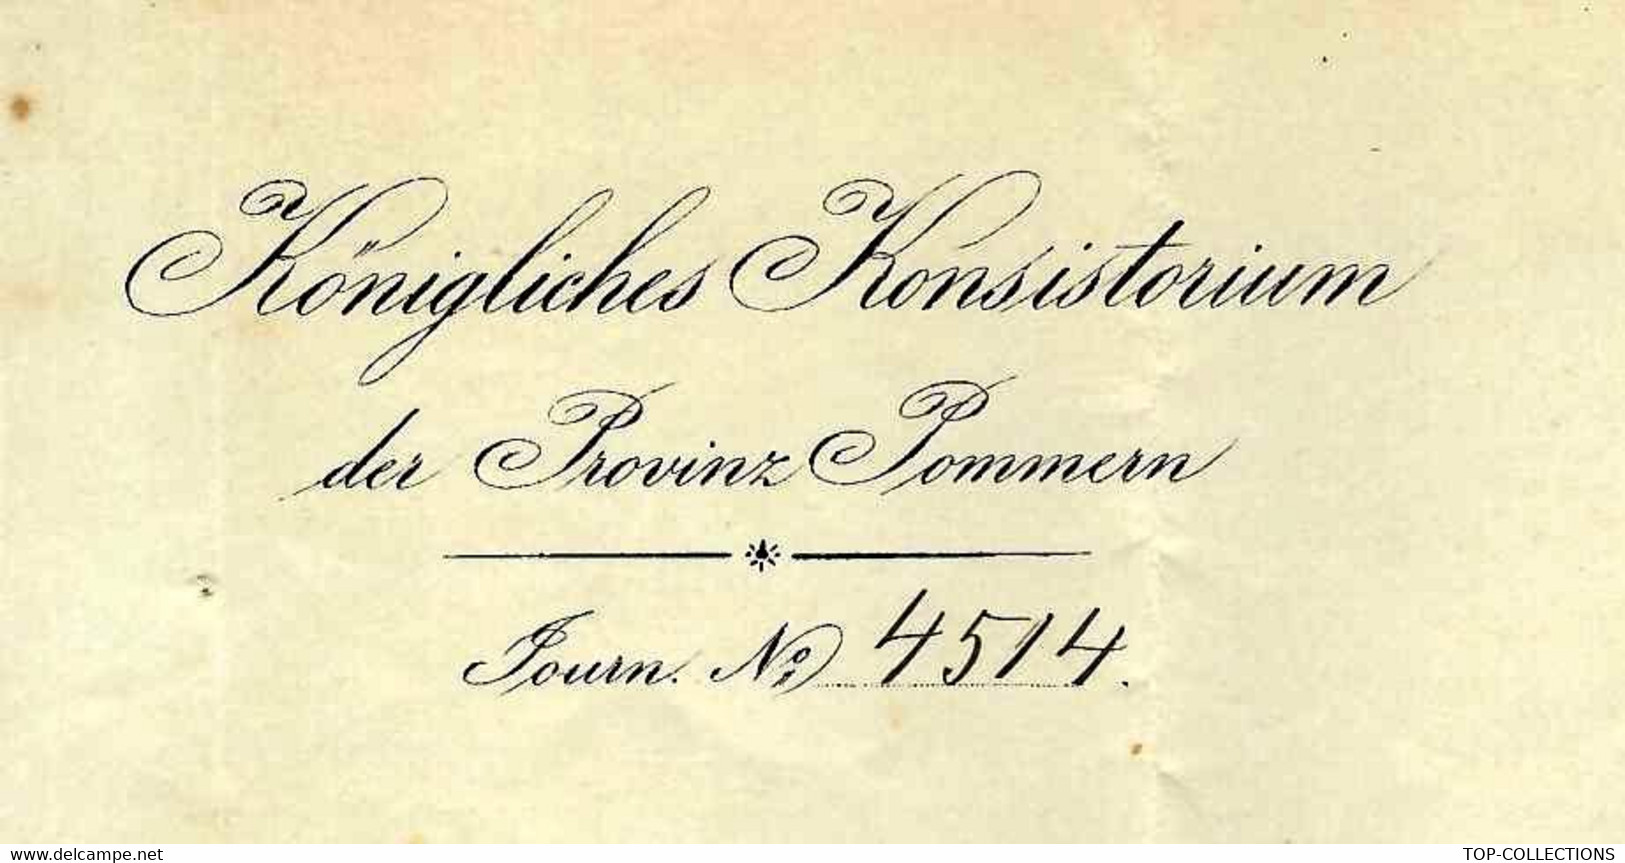 Königliches Konsistorium
der Provinz Pommern
Journ. No. 4514.
www.delcampe.net
TOP-COLLECTIONS